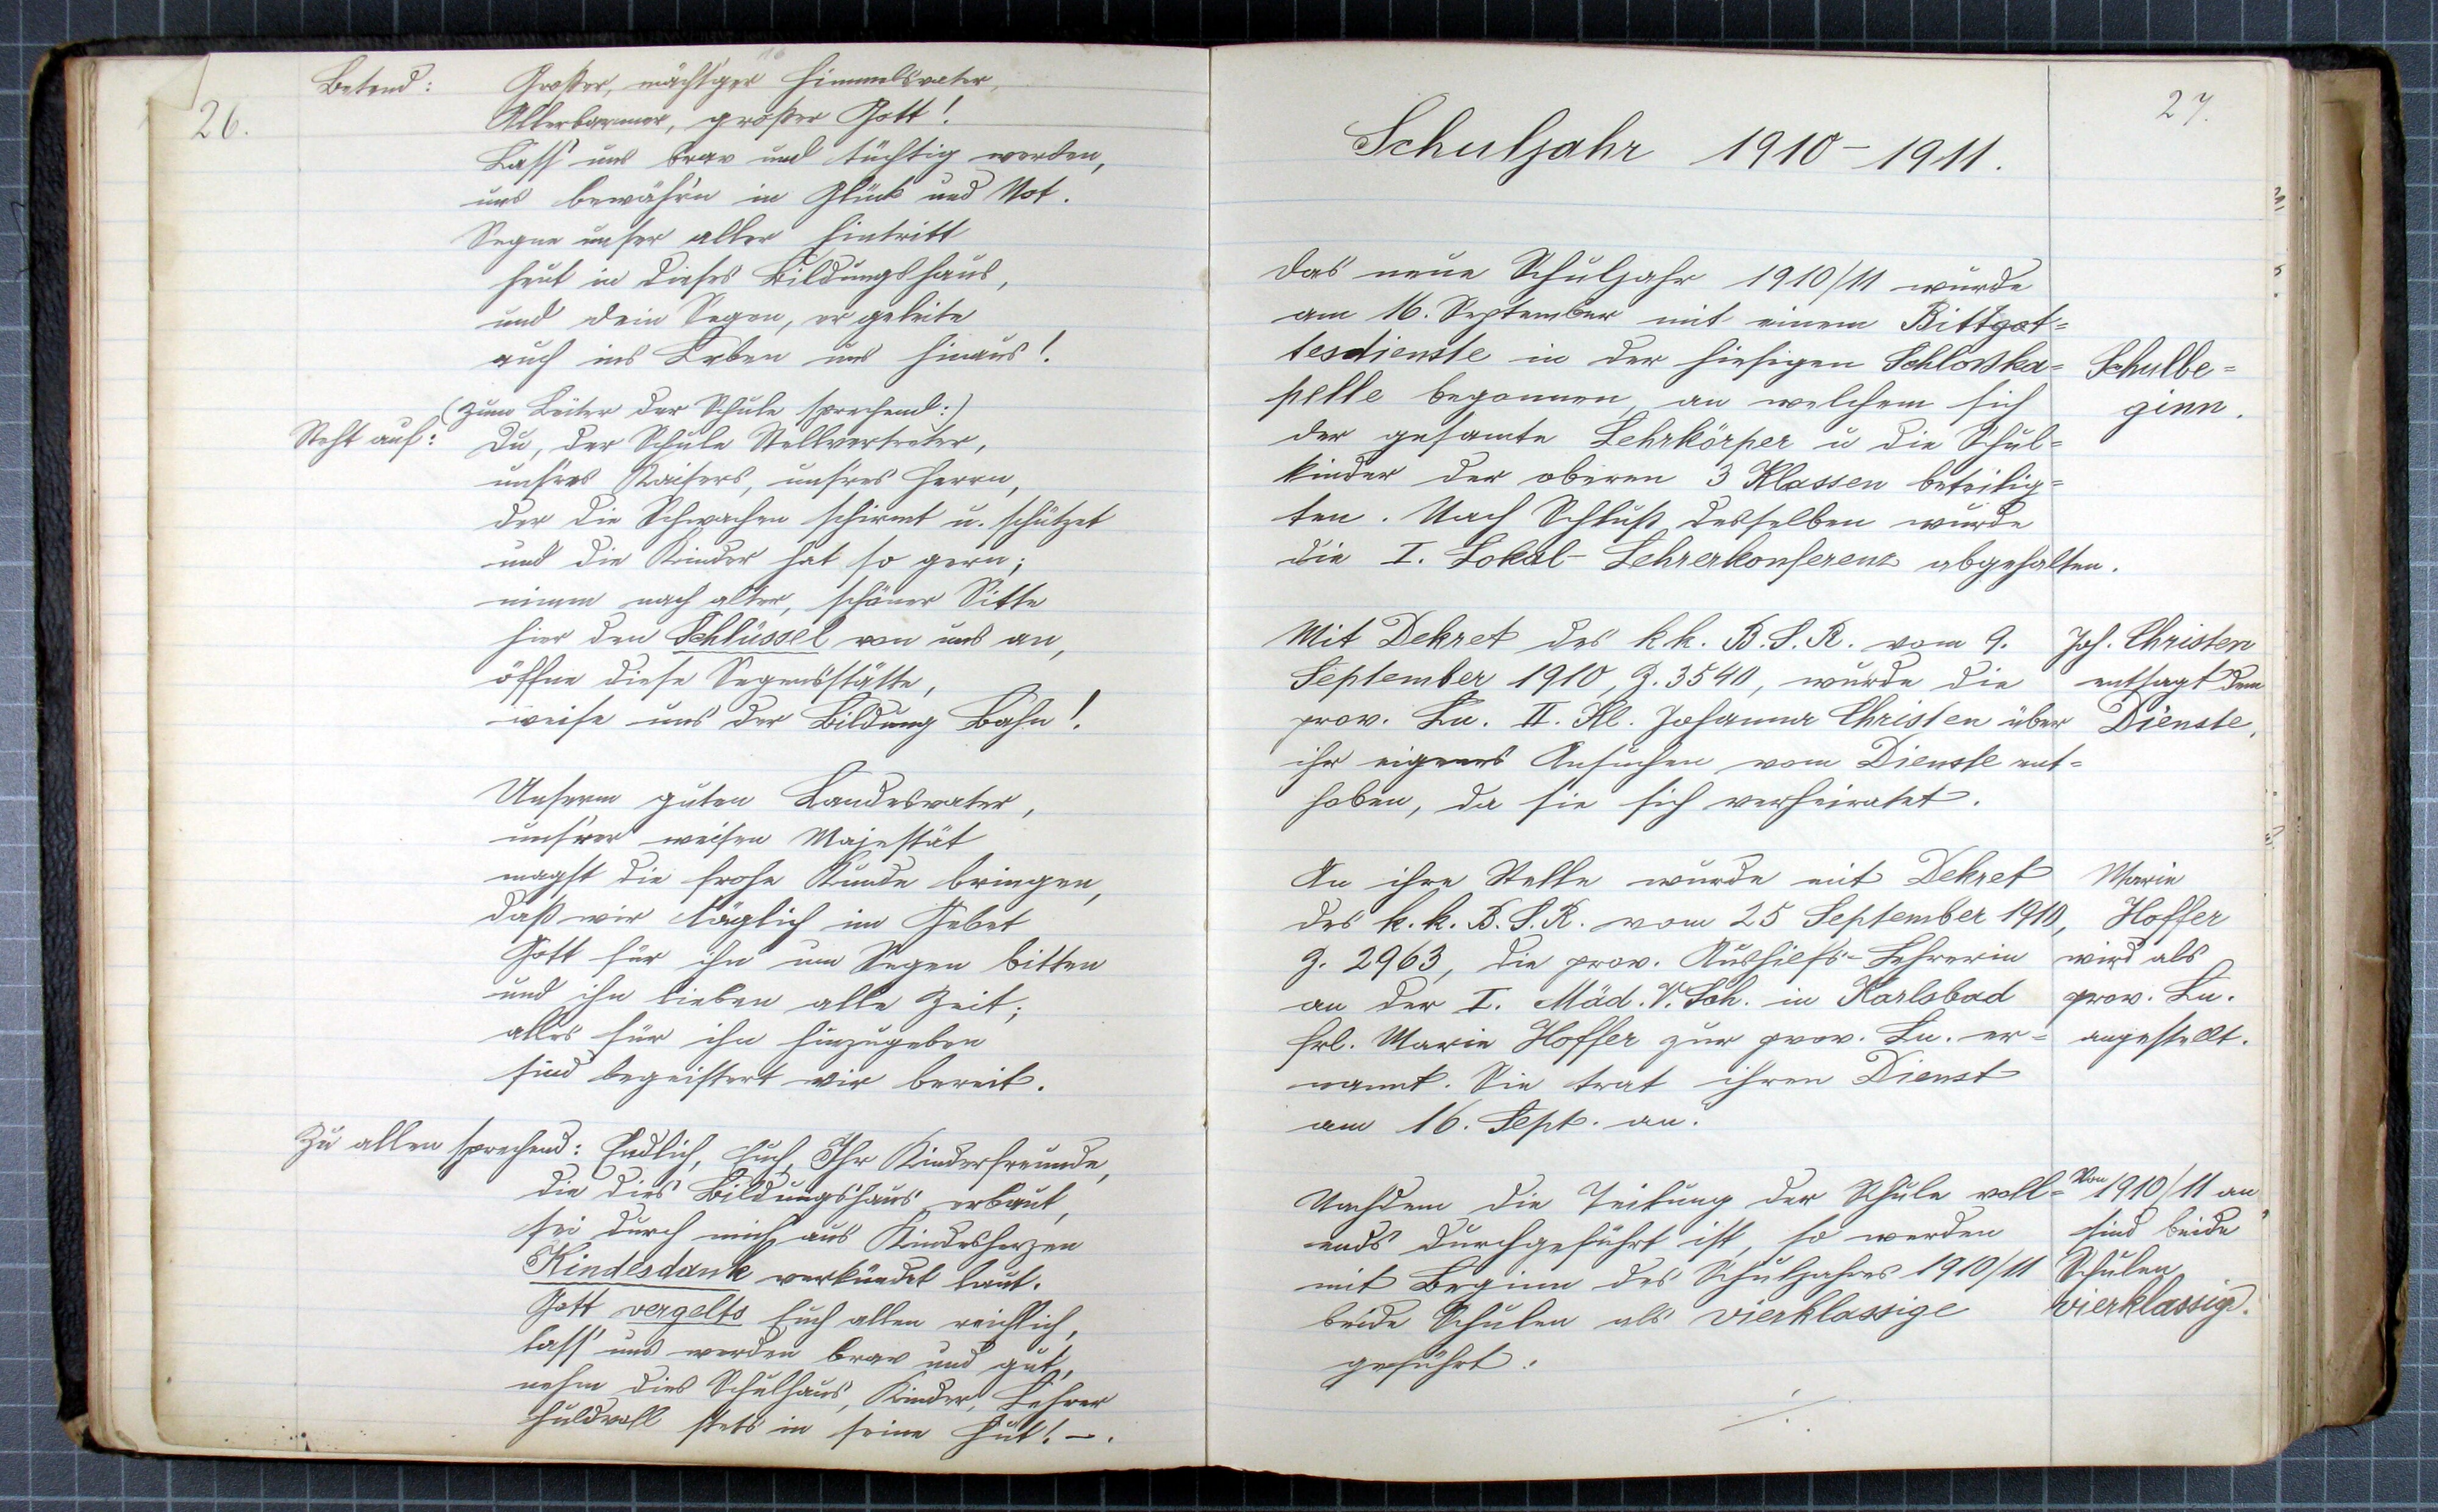 26.
Betend: Großer, mächt'ger Himmelsvater,
Allerbarmer, großer Gott!
Lass' uns brav und tüchtig werden,
uns bewähr'n in Glück und Not.
Segne unser aller Eintritt
heut in dieses Bildungshaus,
und dein Segen, er geleite
auch ins Leben uns hinaus!
(Zum Leiter der Schule sprechend:)
Steht auf: Du, der Schule Stellvertreter,
unsres Kaisers, unsres Herrn,
der die Schwachen schirmt u. schützet
und die Kinder hat so gern;
nimm nach alter, schöner Sitte
hier den Schlüssel von uns an,
öffne diese Segensstätte,
weise uns der Bildung Bahn!
Unserm guten Landesvater,
uns'rer weisen Majestät
magst die frohe Kunde bringen,
daß wir täglich im Gebet
Gott für ihn um Segen bitten
und ihn lieben alle Zeit;
alles für ihn hinzugeben
sind begeistert wir bereit.
Zu allen sprechend: Endlich, Euch, Ihr Kinderfreunde,
die dies Bildungshaus erbaut,
sei durch mich aus Kindesherzen
Kindesdank verkündet laut.
Gott vergelts Euch allen reichlich,
lass' uns werden brav und gut,
nehm dies Schulhaus, Kinder, Lehrer
huldvoll stets in seine Hut! –.
27.
Schuljahr 1910–1911.
Das neue Schuljahr 1910/11 wurde
am 16. September mit einem Bittgot=
tesdienste in der hiesigen Schloßka=
pelle begonnen, an welchem sich
der gesamte Lehrkörper u die Schul=
kinder der oberen 3 Klassen beteilig=
ten. Nach Schluß desselben wurde
die I. Lokal-Lehrerkonferenz abgehalten.
Schulbe=
ginn.
Mit Dekret des k.k. B.S.R. vom 9.
September 1910, Z. 3540, wurde die
prov. Ln. II. Kl. Johanna Christen über
ihr eigenes Ansuchen vom Dienste ent=
hoben, da sie sich verheiratet.
Joh. Christen
entsagt dem
Dienste.
An ihre Stelle wurde mit Dekret
des k.k. B.S.R. vom 25 September 1910,
Z. 2963, die prov. Aushilfs-Lehrerin
an der I. Mäd. V. Sch. in Karlsbad
Frl. Marie Hoffer zur prov. Ln. er=
nannt. Sie trat ihren Dienst
am 16. Sept. an.
Marie
Hoffer
wird als
prov. Ln.
angestellt.
Nachdem die Teilung der Schule voll=
ends durchgeführt ist, so werden
mit Beginn des Schuljahres 1910/11
beide Schulen als vierklassige
geführt.
Von 1910/11 an
sind beide
Schulen
vierklassig.